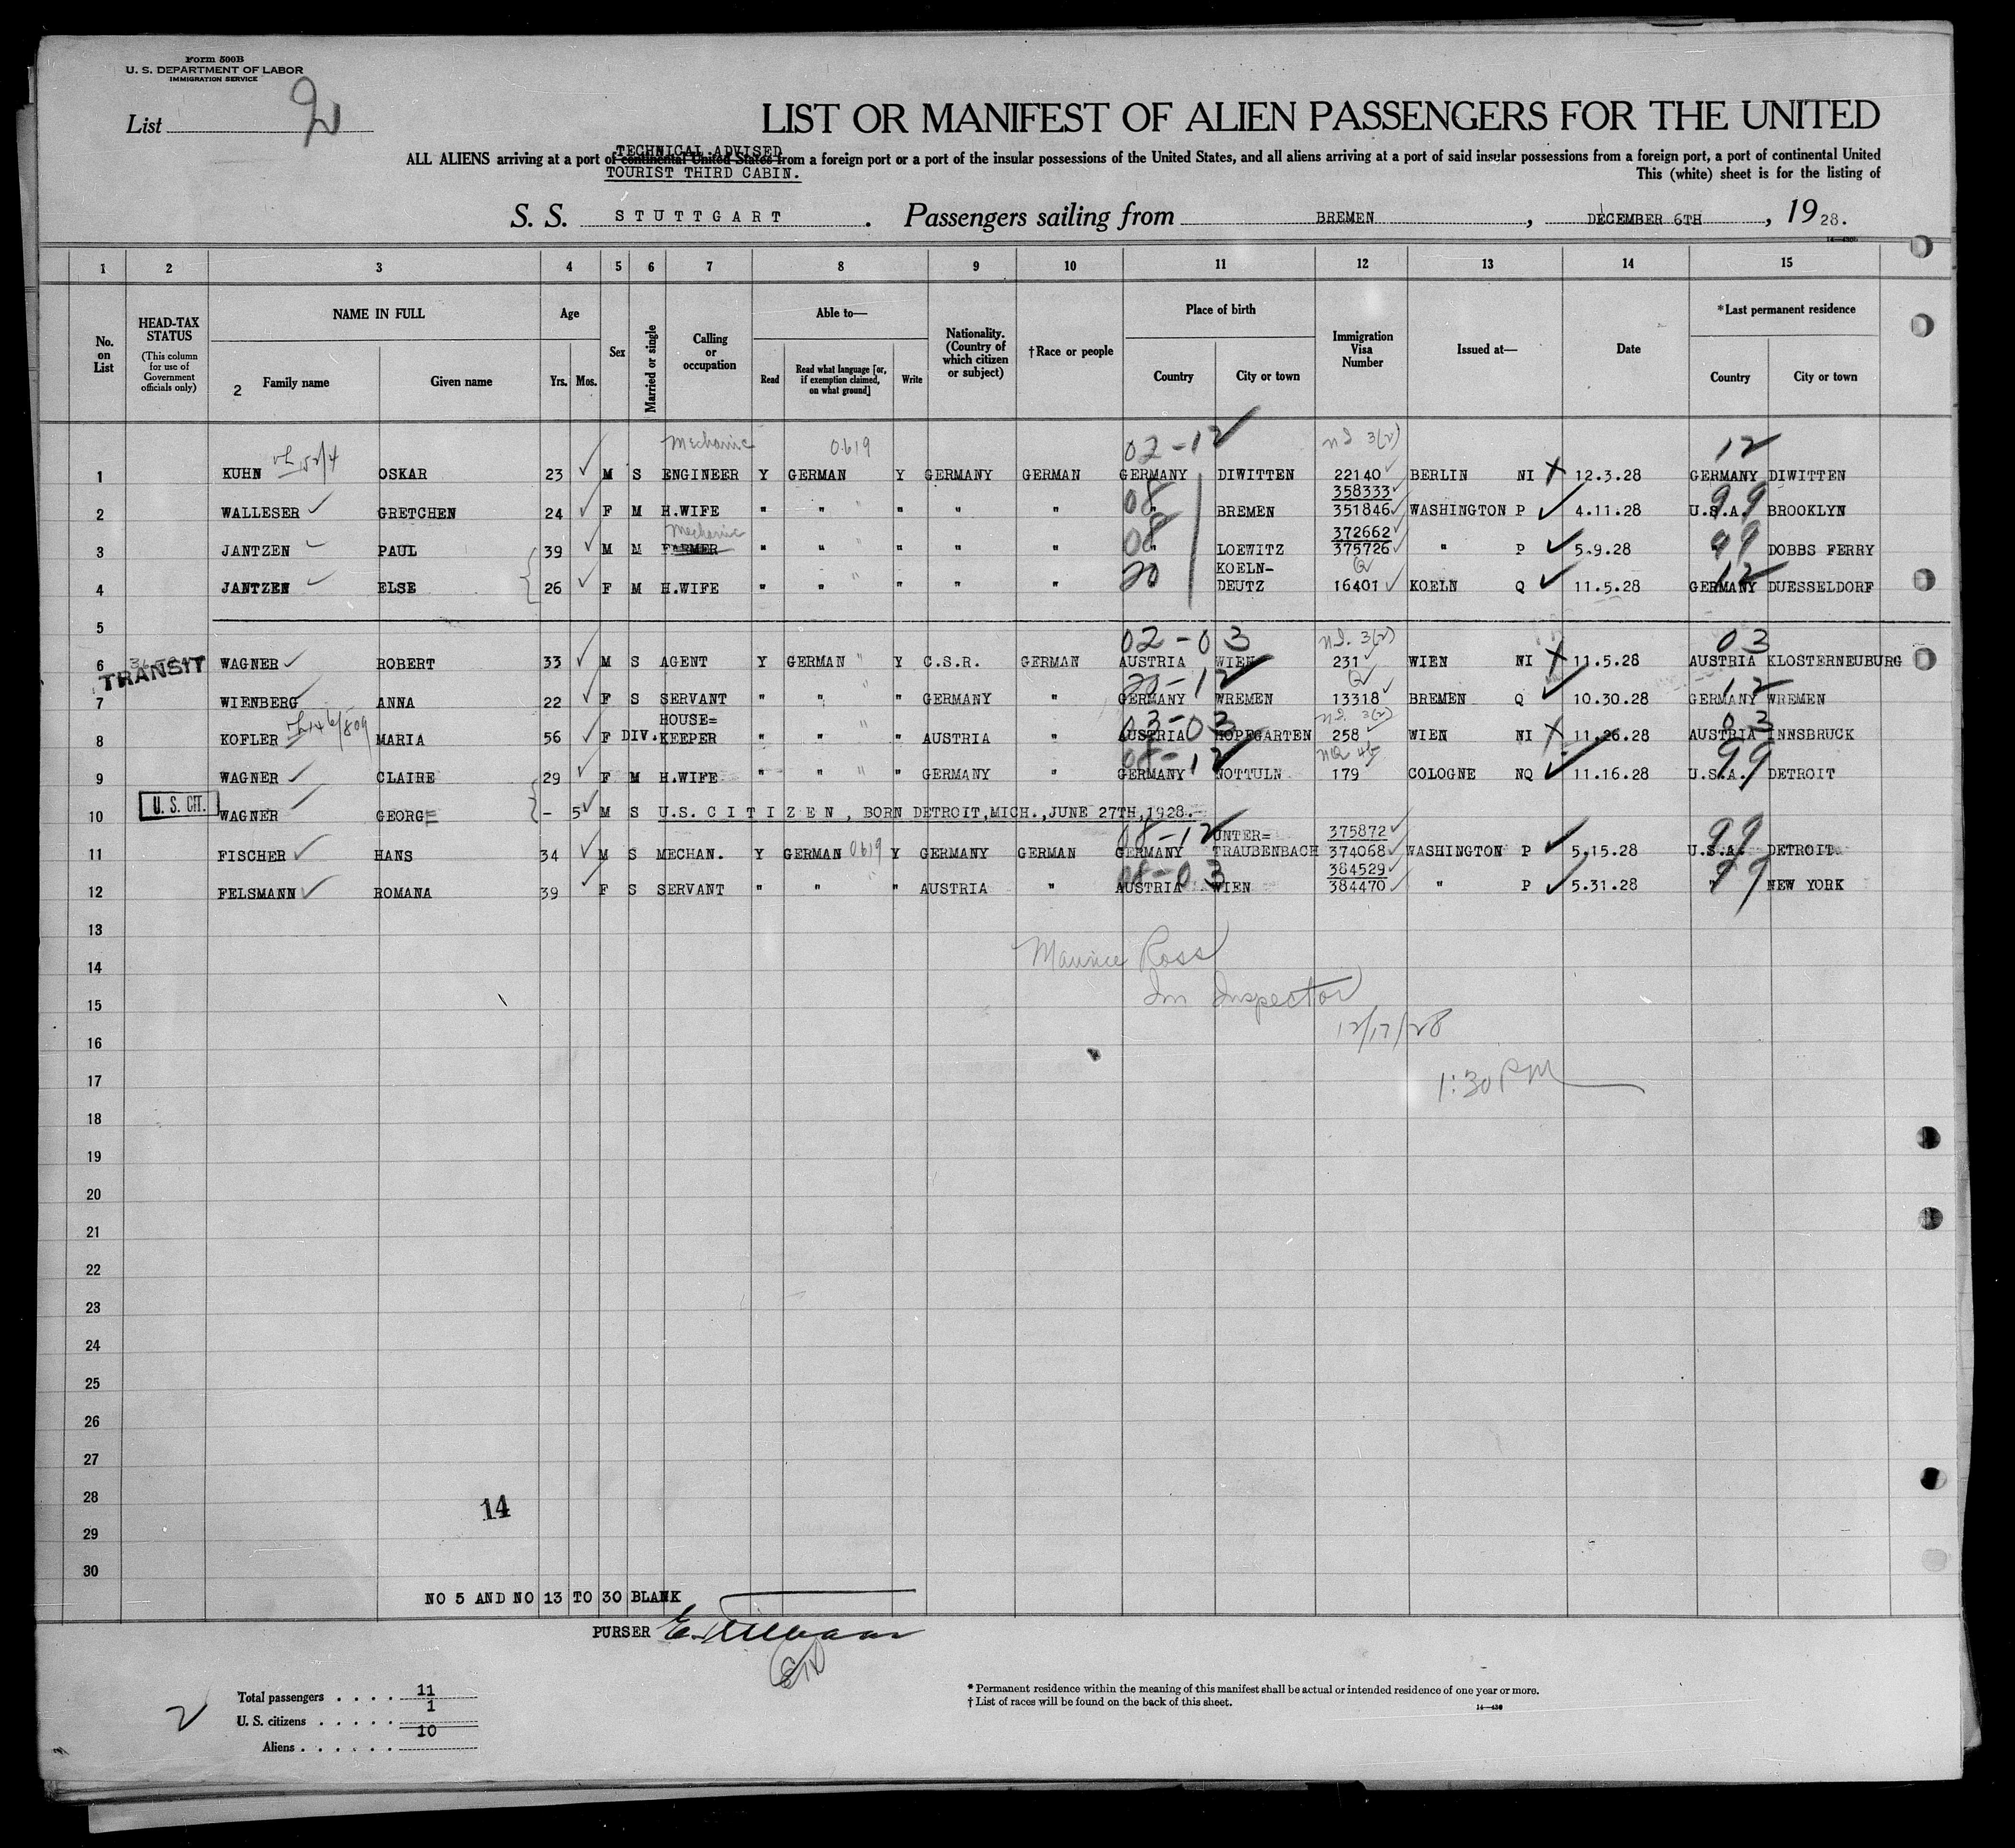 Form 500B
U. S. DEPARTMENT OF LABOR
IMMIGRATION SERVICE
List 2
LIST OR MANIFEST OF ALIEN PASSENGERS FOR THE UNITED
TECHNICAL ADVISED
ALL ALIENS arriving at a port of continental United States from a foreign port or a port of the insular possessions of the United States, and all aliens arriving at a port of said insular possessions from a foreign port, a port of continental United
TOURIST THIRD CABIN.
This (white) sheet is for the listing of
S. S. STUTTGART. Passengers sailing from BREMEN, DECEMBER 6TH, 1928.
1 2 3 4 5 6 7 8 9 10 11 12 13 14 15
No. on List
HEAD-TAX STATUS (This column for use of Government officials only)
NAME IN FULL
2 Family name Given name
Age
Yrs. Mos.
Sex
Married or single
Calling or occupation
Able to—
Read
Read what language [or, if exemption claimed, on what ground]
Write
Nationality. (Country of which citizen or subject)
†Race or people
Place of birth
Country City or town
Immigration Visa Number
Issued at—
Date
*Last permanent residence
Country City or town
Mechanic 0619 02-12 NI 3(2) 12
1 KUHN OSKAR 23 M S ENGINEER Y GERMAN Y GERMANY GERMAN GERMANY DIWITTEN 22140 BERLIN NI 12.3.28 GERMANY DIWITTEN
358333
2 WALLESER GRETCHEN 24 F M H.WIFE " " " " " 08 BREMEN 351846 WASHINGTON P 4.11.28 U.S.A. 99 BROOKLYN
Mechanic 372662
3 JANTZEN PAUL 39 M M FARMER " " " " " 08 " LOEWITZ 375726 " P 5.9.28 99 DOBBS FERRY
KOELN- Q
4 JANTZEN ELSE 26 F M H.WIFE " " " " " 20 DEUTZ 16401 KOELN Q 11.5.28 GERMANY 12 DUESSELDORF
5
02-03 NI. 3(2) 03
6 TRANSIT WAGNER ROBERT 33 M S AGENT Y GERMAN " Y C.S.R. GERMAN AUSTRIA WIEN 231 WIEN NI 11.5.28 AUSTRIA KLOSTERNEUBURG
20-12 Q 12
7 WIENBERG ANNA 22 F S SERVANT " " " GERMANY " GERMANY WREMEN 13318 BREMEN Q 10.30.28 GERMANY WREMEN
HOUSE= 03-03 NI. 3(2) 03
8 KOFLER MARIA 56 F DIV. KEEPER " " " AUSTRIA " AUSTRIA HOPFGARTEN 258 WIEN NI 11.26.28 AUSTRIA INNSBRUCK
08-12 99
9 WAGNER CLAIRE 29 F M H.WIFE " " " " GERMANY " GERMANY NOTTULN 179 COLOGNE NQ 11.16.28 U.S.A. DETROIT
10 U. S. CIT. WAGNER GEORGE - 5 M S U.S. CITIZEN, BORN DETROIT,MICH.,JUNE 27TH,1928.-
08-12 UNTER= 375872 99
11 FISCHER HANS 34 M S MECHAN. Y GERMAN 0619 Y GERMANY GERMAN GERMANY TRAUBENBACH 374068 WASHINGTON P 5.15.28 U.S.A. DETROIT.
08-03 384529 99
12 FELSMANN ROMANA 39 F S SERVANT " " " AUSTRIA " AUSTRIA WIEN 384470 " P 5.31.28 " NEW YORK
13
Maurice Ross
14
Im Inspector
15
12/17/28
16
1:30 PM
17
18
19
20
21
22
23
24
25
26
27
28
14
29
30
NO 5 AND NO 13 TO 30 BLANK
PURSER
Total passengers . . . . 11
U. S. citizens . . . . . 1
Aliens . . . . . . 10
2
* Permanent residence within the meaning of this manifest shall be actual or intended residence of one year or more.
† List of races will be found on the back of this sheet.
14—430